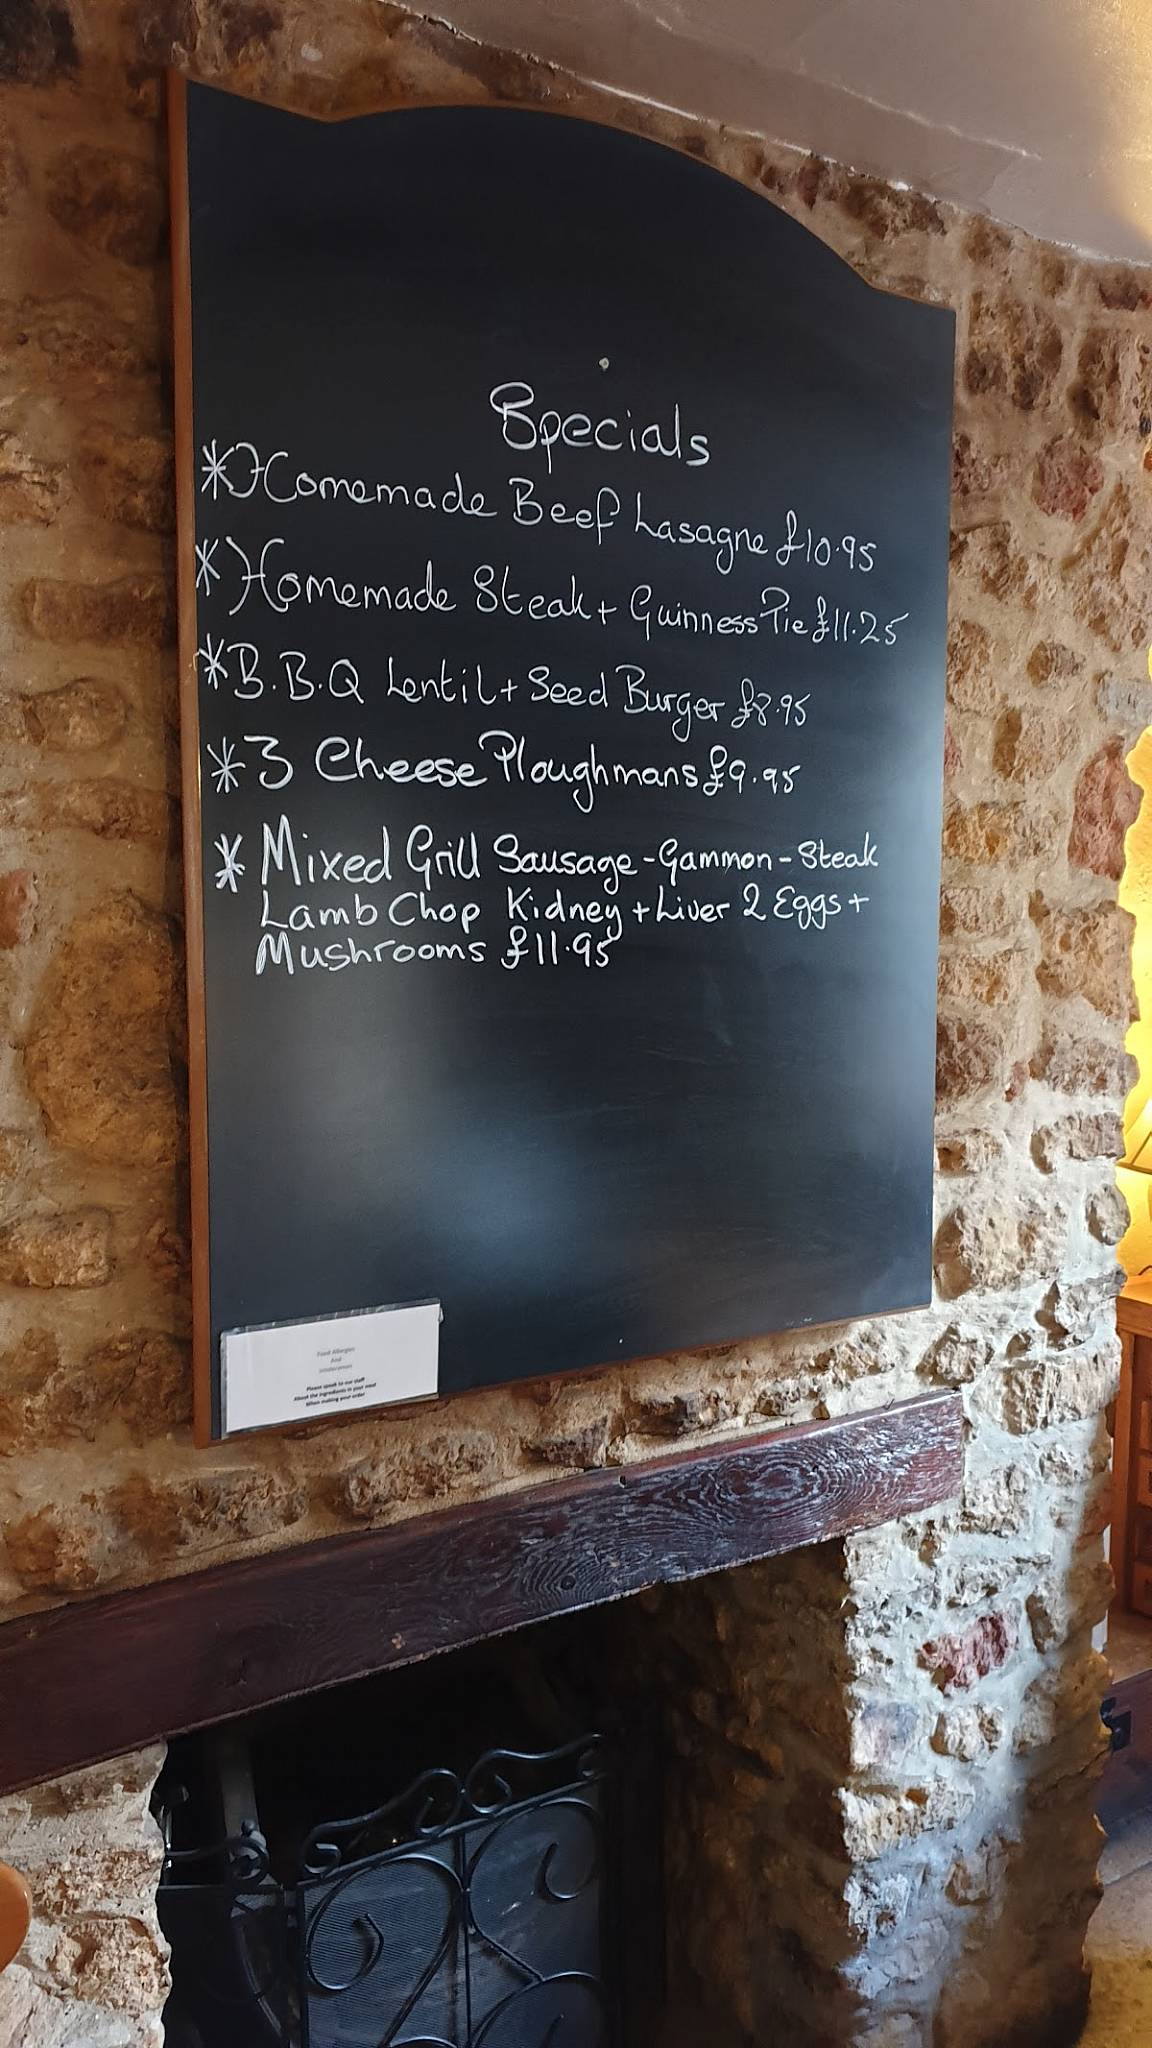 Specials
* Homemade Beef Lasagne £10.95
* Homemade Steak + Guinness Pie £11.25
* B.B.Q Lentil + Seed Burger £8.95
* 3 Cheese Ploughmans £9.95
* Mixed Grill Sausage - Gammon - Steak
Lamb Chop Kidney + Liver 2 Eggs +
Mushrooms £11.95
Food Allergies
And
Intolerances
Please speak to our staff
About the ingredients in your meal
When making your order